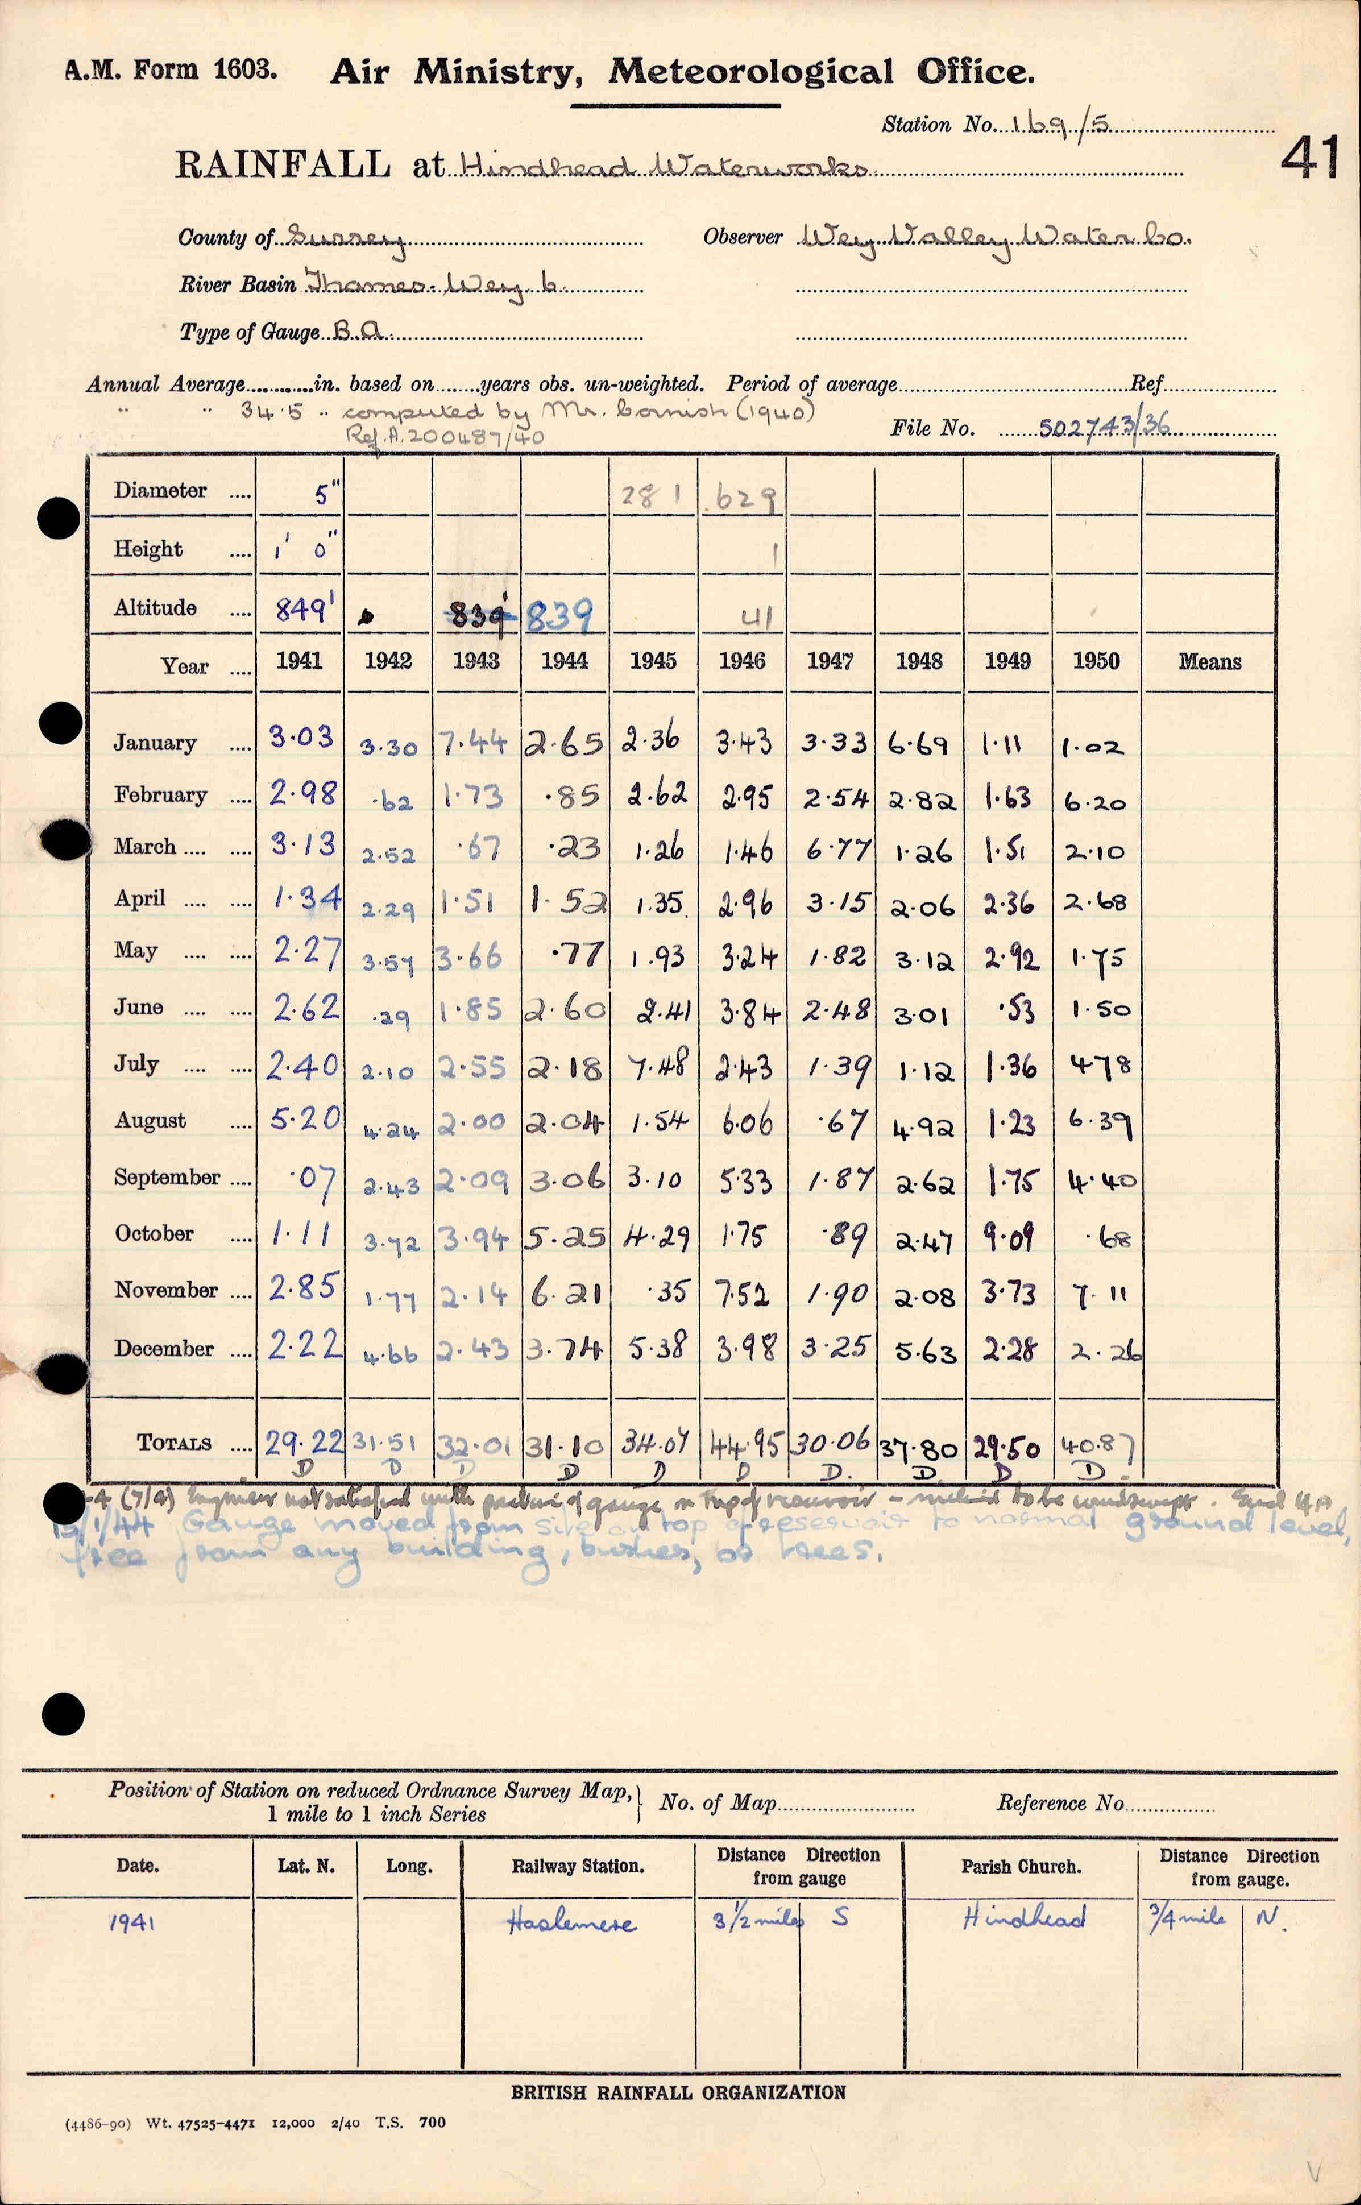 A.M. Form 1603. Air Ministry, Meteorological Office.
Station No. 169/5
41
RAINFALL at Hindhead Waterworks
County of Surrey Observer Wey Valley Water Co.
River Basin Thames-Wey b.
Type of Gauge B.A.
Annual Average............in. based on.......years obs. un-weighted. Period of average............Ref............
" " 34.5 " computed by Mr. Cornish (1940)
Ref. A.200487/40
File No. 502743/36
Diameter .... 5" 281 629
Height .... 1' 0" 1
Altitude .... 849' 839' 839 41
Year .... 1941 1942 1943 1944 1945 1946 1947 1948 1949 1950 Means
January .... 3.03 3.30 7.44 2.65 2.36 3.43 3.33 6.69 1.11 1.02
February .... 2.98 .62 1.73 .85 2.62 2.95 2.54 2.82 1.63 6.20
March .... .... 3.13 2.52 .67 .23 1.26 1.46 6.77 1.26 1.51 2.10
April .... .... 1.34 2.29 1.51 1.52 1.35 2.96 3.15 2.06 2.36 2.68
May .... .... 2.27 3.57 3.66 .77 1.93 3.24 1.82 3.12 2.92 1.75
June .... .... 2.62 .29 1.85 2.60 2.41 3.84 2.48 3.01 .53 1.50
July .... .... 2.40 2.10 2.55 2.18 7.48 2.43 1.39 1.12 1.36 4.78
August .... 5.20 4.24 2.00 2.04 1.54 6.06 .67 4.92 1.23 6.39
September .... .07 2.43 2.09 3.06 3.10 5.33 1.87 2.62 1.75 4.40
October .... 1.11 3.72 3.94 5.25 4.29 1.75 .89 2.47 9.09 .68
November .... 2.85 1.77 2.14 6.21 .35 7.52 1.90 2.08 3.73 7.11
December .... 2.22 4.66 2.43 3.74 5.38 3.98 3.25 5.63 2.28 2.26
TOTALS .... 29.22 31.51 32.01 31.10 34.07 44.95 30.06 37.80 29.50 40.87
D D D D D D D. D. D. D.
(7/4) Engineer not satisfied with position of gauge on top of reservoir - to be windswept.
/1/44 Gauge moved from site on top of reservoir to normal ground level,
free from any building, bushes, or trees.
Position of Station on reduced Ordnance Survey Map, 1 mile to 1 inch Series No. of Map............ Reference No............
Date. Lat. N. Long. Railway Station. Distance Direction from gauge Parish Church. Distance Direction from gauge.
1941 Haslemere 3 1/2 miles S Hindhead 3/4 mile N.
BRITISH RAINFALL ORGANIZATION
(4486-90) Wt. 47525-4471 12,000 2/40 T.S. 700
V